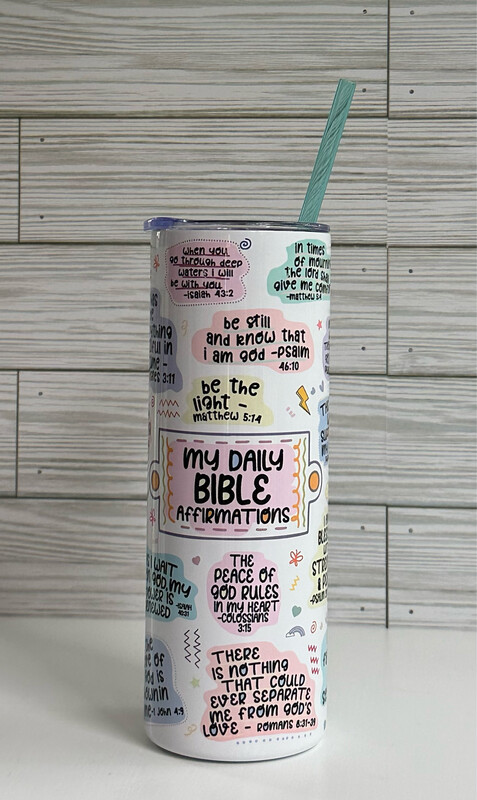 when you
go through deep
waters i will
be with you
-isaiah 43:2
in times
of mourn
the lord sha
give me com
-matthew 5:4
be still
and know that
i am god -psalm
46:10
ful in
3:11
be the
light -
matthew 5:14
MY DAILY
BIBLE
AFFIRMATIONS
WAIT
GOD, MY
IS
40:31
THE
PEACE OF
GOD RULES
IN MY HEART
-COLOSSIANS
3:15
STRE
of
is
in
-1 John 4:9
THERE
IS NOTHING
THAT COULD
EVER SEPARATE
ME FROM GOD'S
LOVE - ROMANS 8:31-39